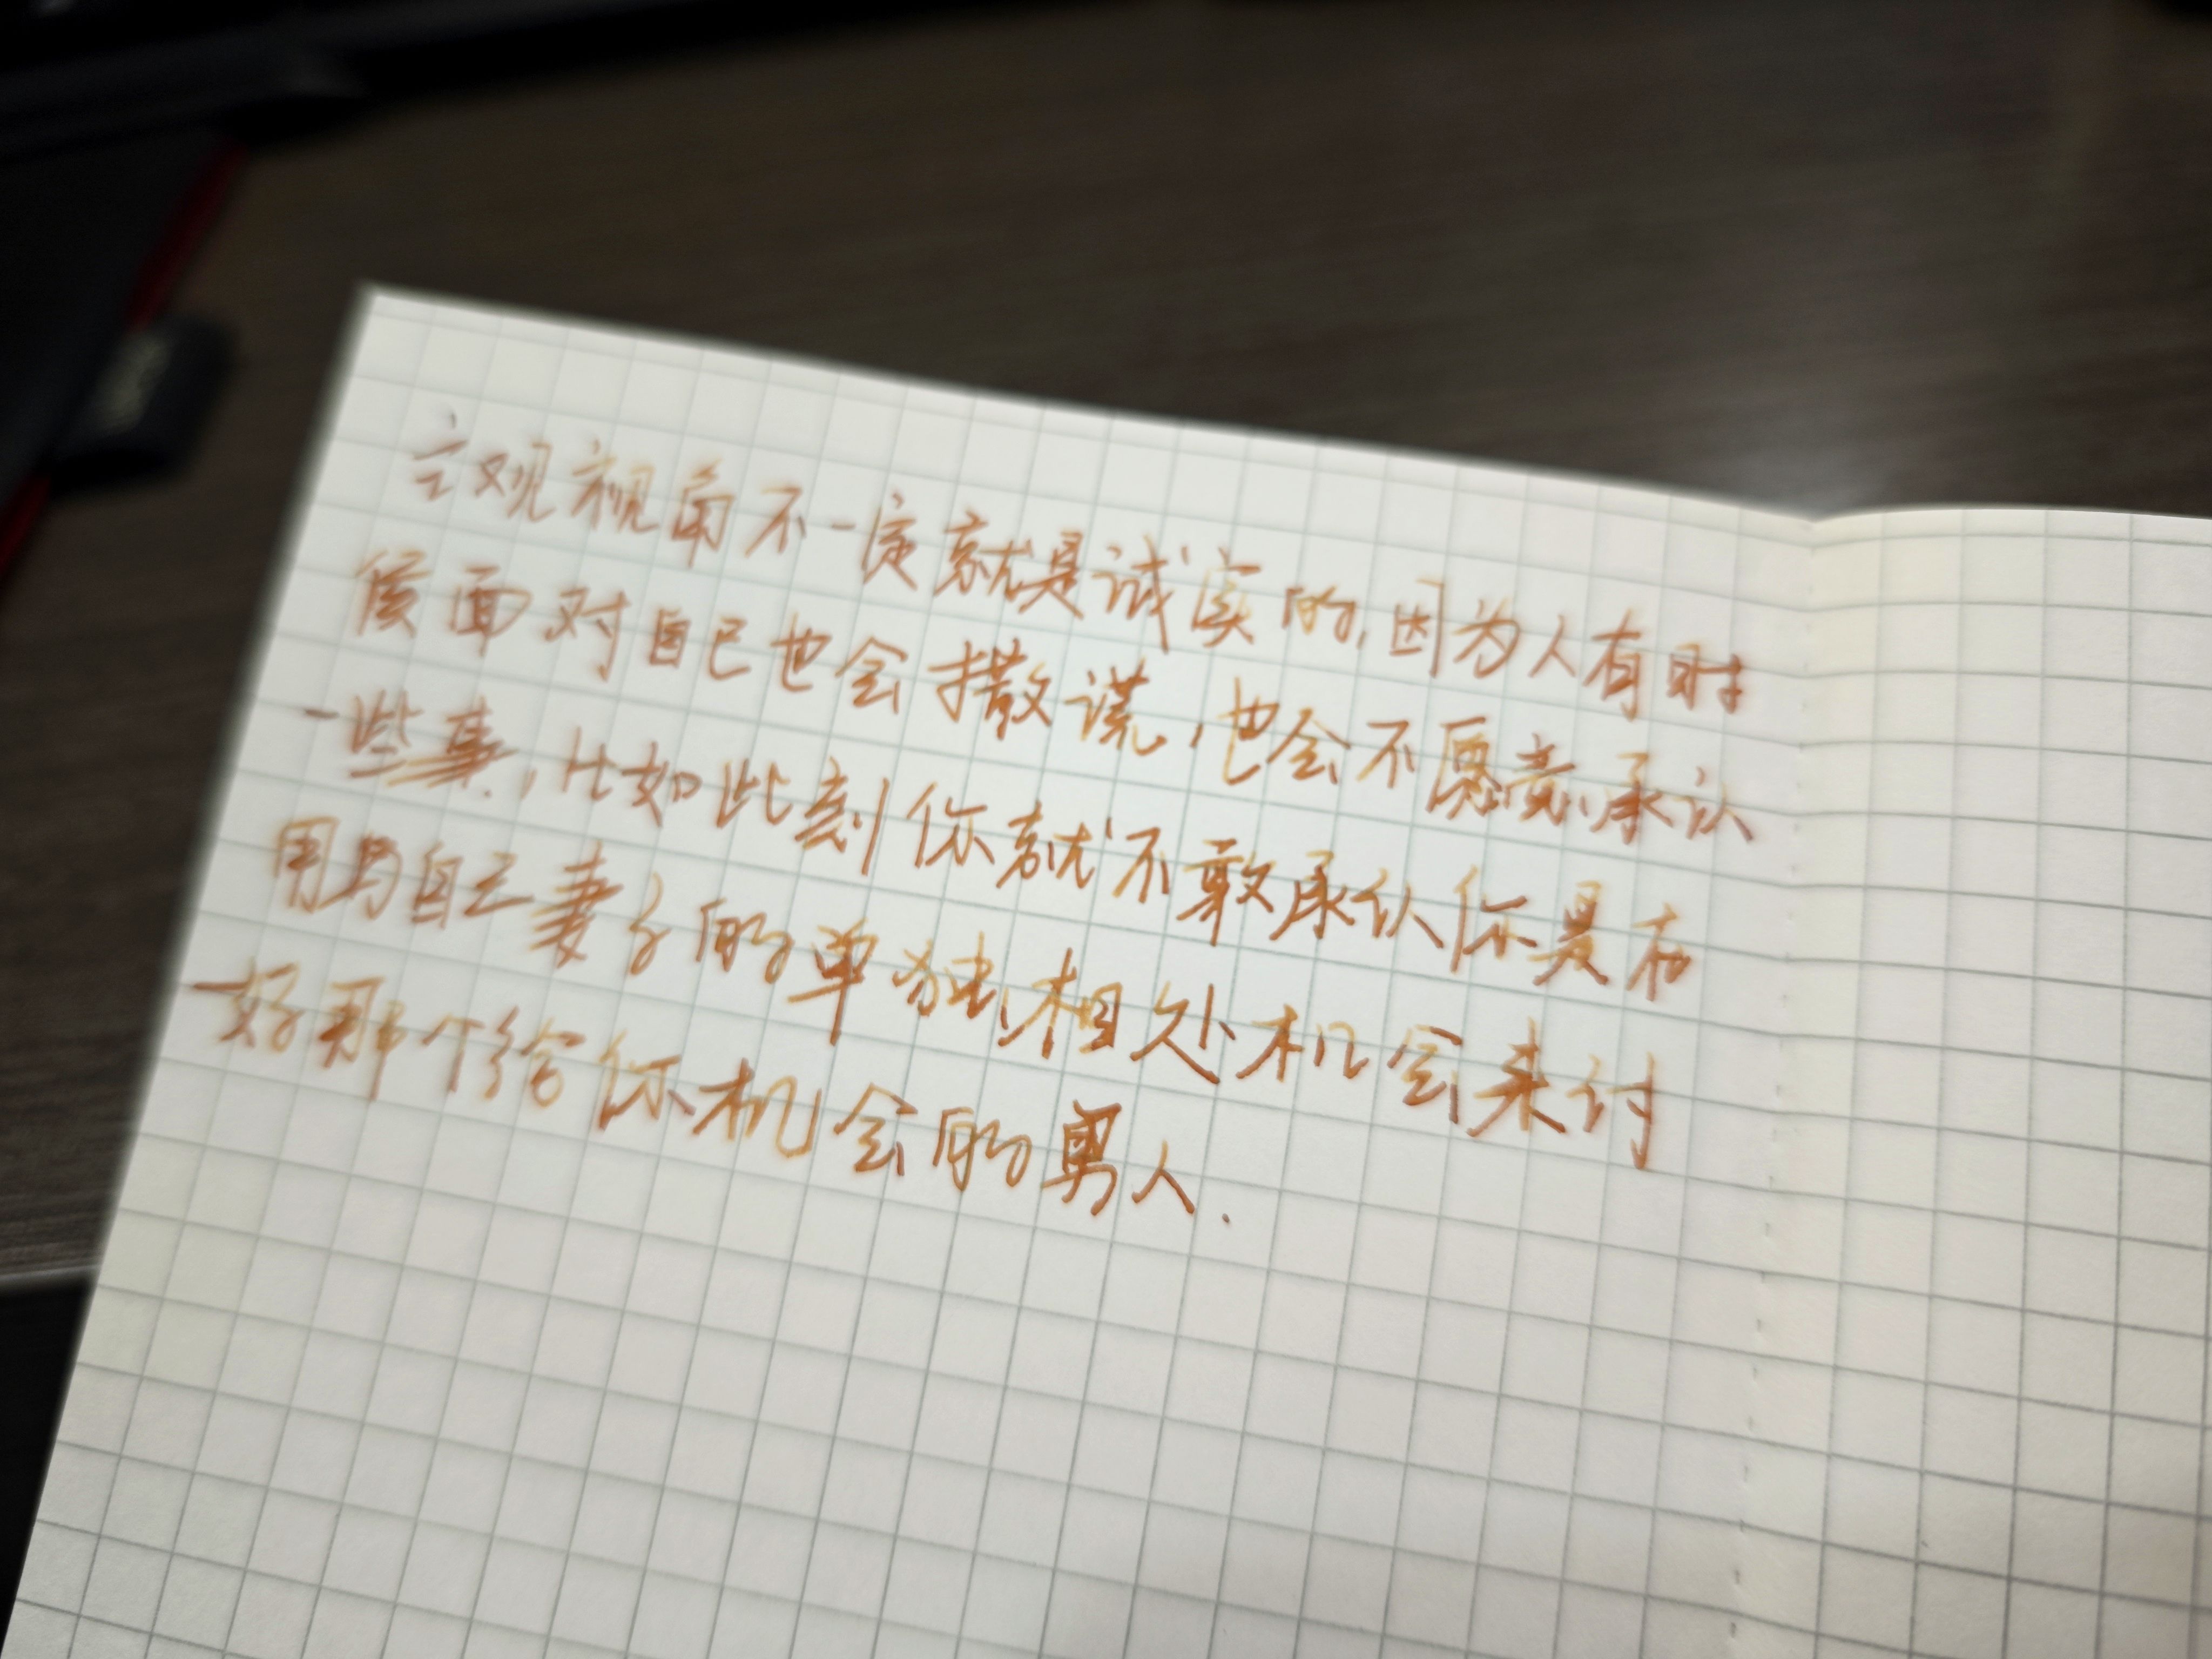 主观视角不一定就是诚实的,因为人有时
候面对自己也会撒谎,也会不愿意承认
一些事,比如此刻你就不敢承认你是在
用与自己妻子的单独相处机会来讨
好那个给你机会的男人.